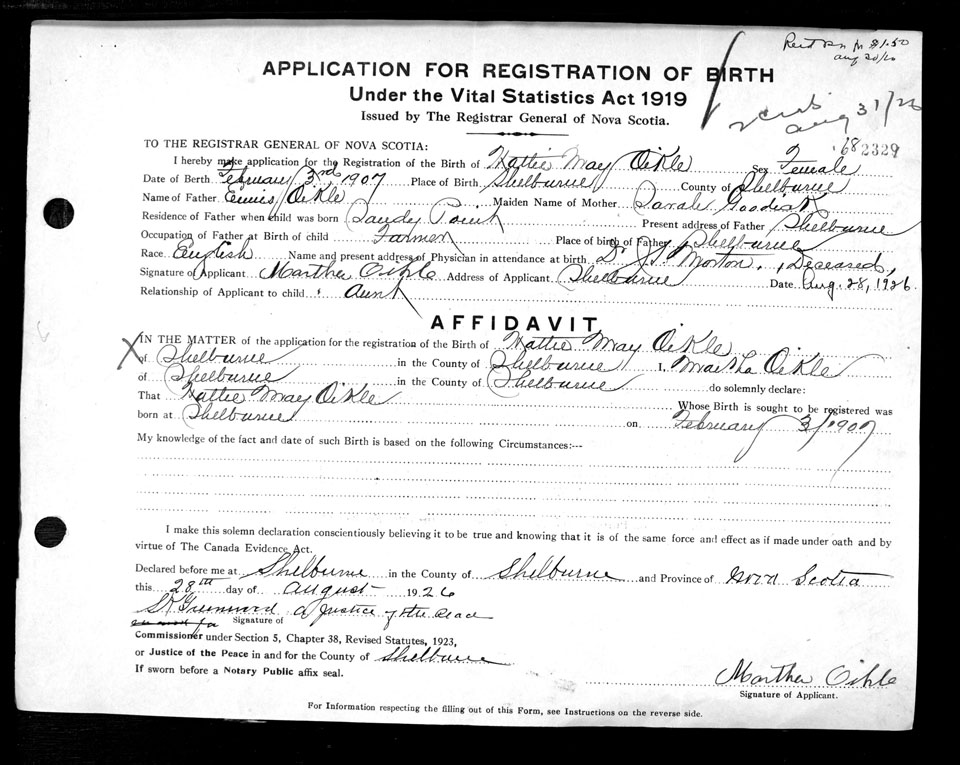 Aug 31/26
APPLICATION FOR REGISTRATION OF BIRTH
Under the Vital Statistics Act 1919
Issued by The Registrar General of Nova Scotia.
TO THE REGISTRAR GENERAL OF NOVA SCOTIA: 68 2329
I hereby make application for the Registration of the Birth of Hattie May Oikle Sex Female
Date of Berth February 3rd 1907 Place of Birth Shelburne County of Shelburne
Name of Father Oikle Maiden Name of Mother Sarah
Residence of Father when child was born Sandy Point Present address of Father Shelburne
Occupation of Father at Birth of child Farmer Place of birth of Father Shelburne
Race. English Name and present address of Physician in attendance at birth Dr Morton, Deceased,
Signature of Applicant Martha Oikle Address of Applicant Shelburne Date Aug. 28, 1926
Relationship of Applicant to child Aunt
AFFIDAVIT
X IN THE MATTER of the application for the registration of the Birth of Hattie May Oikle
of Shelburne in the County of Shelburne I, Martha Oikle
of Shelburne in the County of Shelburne do solemnly declare:
That Hattie May Oikle Whose Birth is sought to be registered was
born at Shelburne on February 3/1907
My knowledge of the fact and date of such Birth is based on the following Circumstances:—
I make this solemn declaration conscientiously believing it to be true and knowing that it is of the same force and effect as if made under oath and by
virtue of The Canada Evidence Act.
Declared before me at Shelburne in the County of Shelburne and Province of Nova Scotia
this 28th day of August 1926
a Justice of the Peace
Signature of
Commissioner under Section 5, Chapter 38, Revised Statutes, 1923,
or Justice of the Peace in and for the County of Shelburne
If sworn before a Notary Public affix seal.
Martha Oikle
Signature of Applicant.
For Information respecting the filling out of this Form, see Instructions on the reverse side.